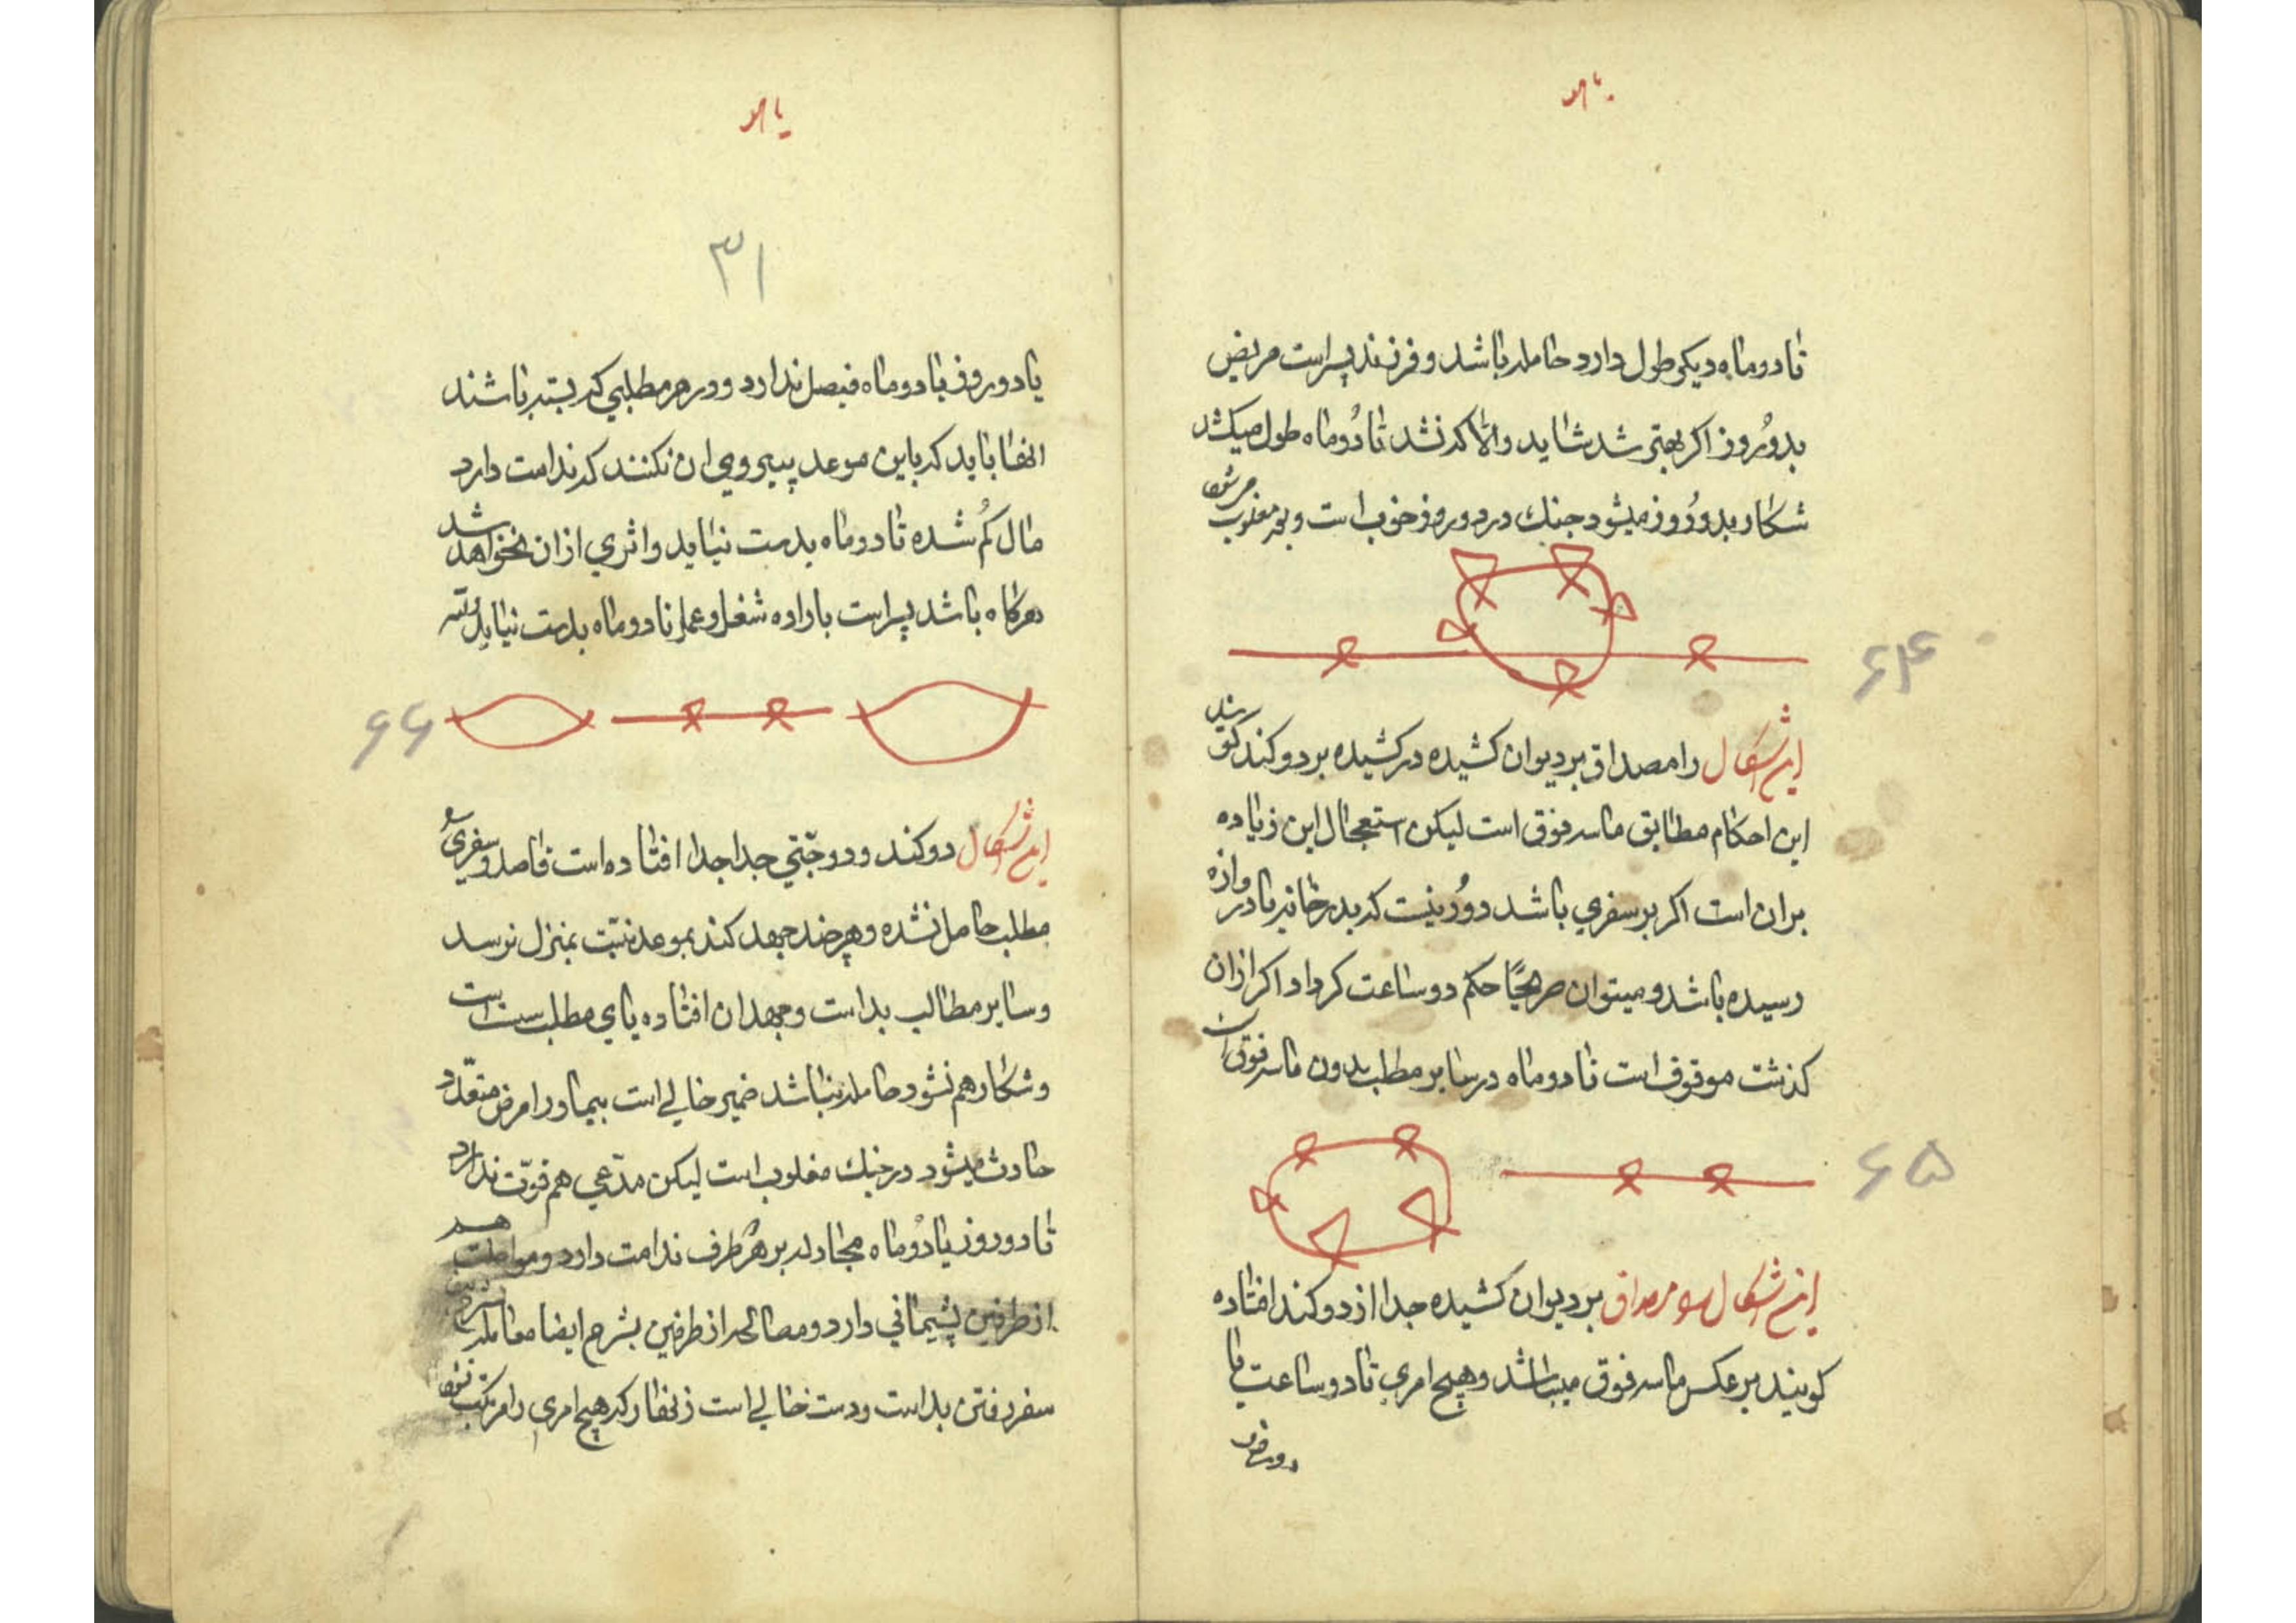 تا دو ماه دیکر طول دارد حامله باشد و فرزند پسر است مریض
بدو روز اکر بهتر شد شاید والا که نشد تا دو ماه طول میکشد
شکار بدو روز میشود جنك در دو روز خوب است و بعد مغلوب میشود
۶۴
این شکال را مصداق بر دیوان کشیده در کشیده بر دو کند کویند
این احکام مطابق ماسر فوق است لیکن استعجال این زیاده
بر ان است اکر بر سفری باشد دور نیست که بدر خانه یا دروازه
رسیده باشد و میتوان صریحًا حکم دو ساعت کرد و اکر از ان
کذشت موقوف است تا دو ماه در سایر مطلب بدون ماسر فوق است
۶۵
این شکال بر دیوان کشیده جدا از دو کند افتاده
کویند بر عکس ماسر فوق میباشد و هیچ امری تا دو ساعت یا
دو روز
۳۱
یا دو روز یا دو ماه فیصل ندارد و در هر مطلبی که بسته باشند
انها باید که باین موعد پیروی ان نکنند که ندامت دارد
مال کم شده تا دو ماه بدست نیاید و اثری از ان نخواهد شد
هرکاه باشد پسر است باراده شغل و عمل تا دو ماه بدست نیاید
۶۶
این شکال دو کند و دو جدا جدا افتاده است قاصد و سفری
مطلب حاصل نشده و هر چند جهد کند بموعد نیت بمنزل نرسد
و سایر مطالب بد است و جهد ان افتاده پای مطلب سست است
و شکار هم نشود حامله نباشد ضمیر خالی است بیمار را مرض متعدد
حادث میشود در جنك مغلوب است لیکن مدعی هم قوت ندارد
تا دو روز یا دو ماه مجادله بر هر طرف ندامت دارد و مواصلت هم
از طرفین پشیمانی دارد و مصالحه از طرفین بشرح ایضا معامله
سفر رفتن بد است و دست خالی است زنهار که هیچ امری را مرتکب نشود